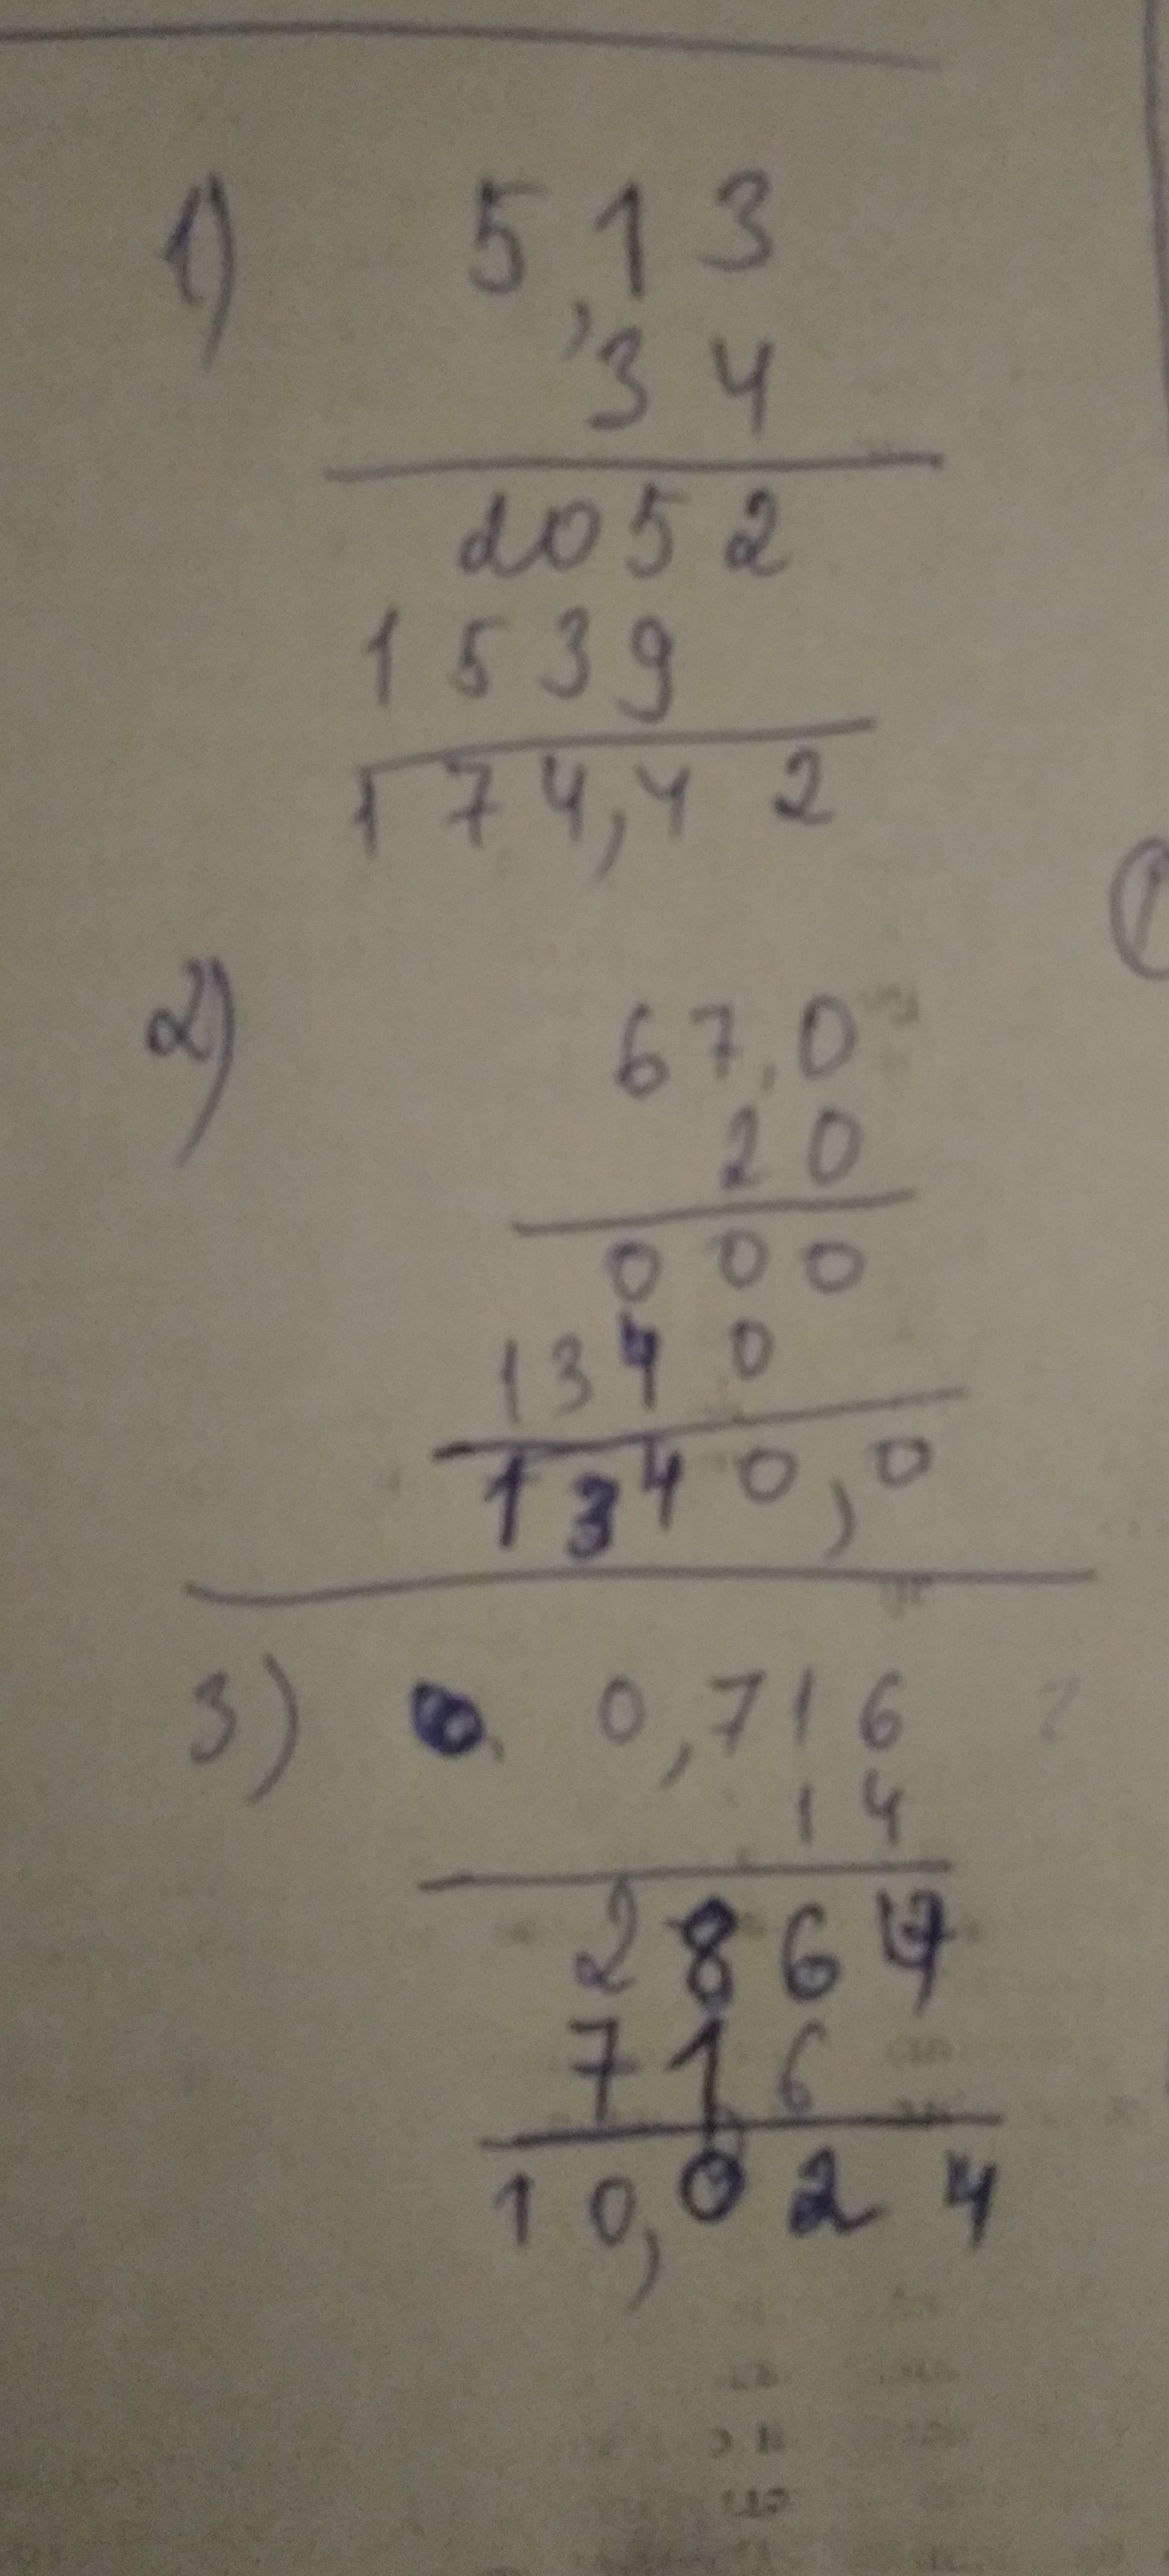 1) 5,13
34
2052
1539
174,42
2) 67,0
20
000
1340
1340,0
3) 0,716 ?
14
2864
716
10,024